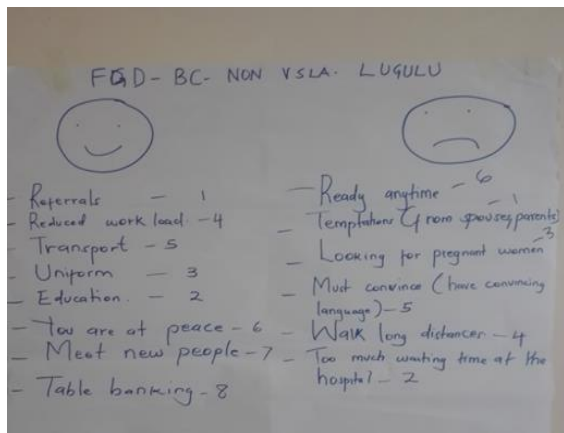 FGD - BC - NON VSLA. LUGULU
- Referrals - 1
- Reduced work load - 4
- Transport - 5
- Uniform - 3
- Education. - 2
- You are at peace - 6
- Meet new people - 7
- Table banking - 8
- Ready anytime - 6
- Temptations (from spouses, parents) - 1
- Looking for pregnant women - 3
- Must convince (have convincing
language) - 5
- Walk long distances - 4
- Too much waiting time at the
hospital - 2